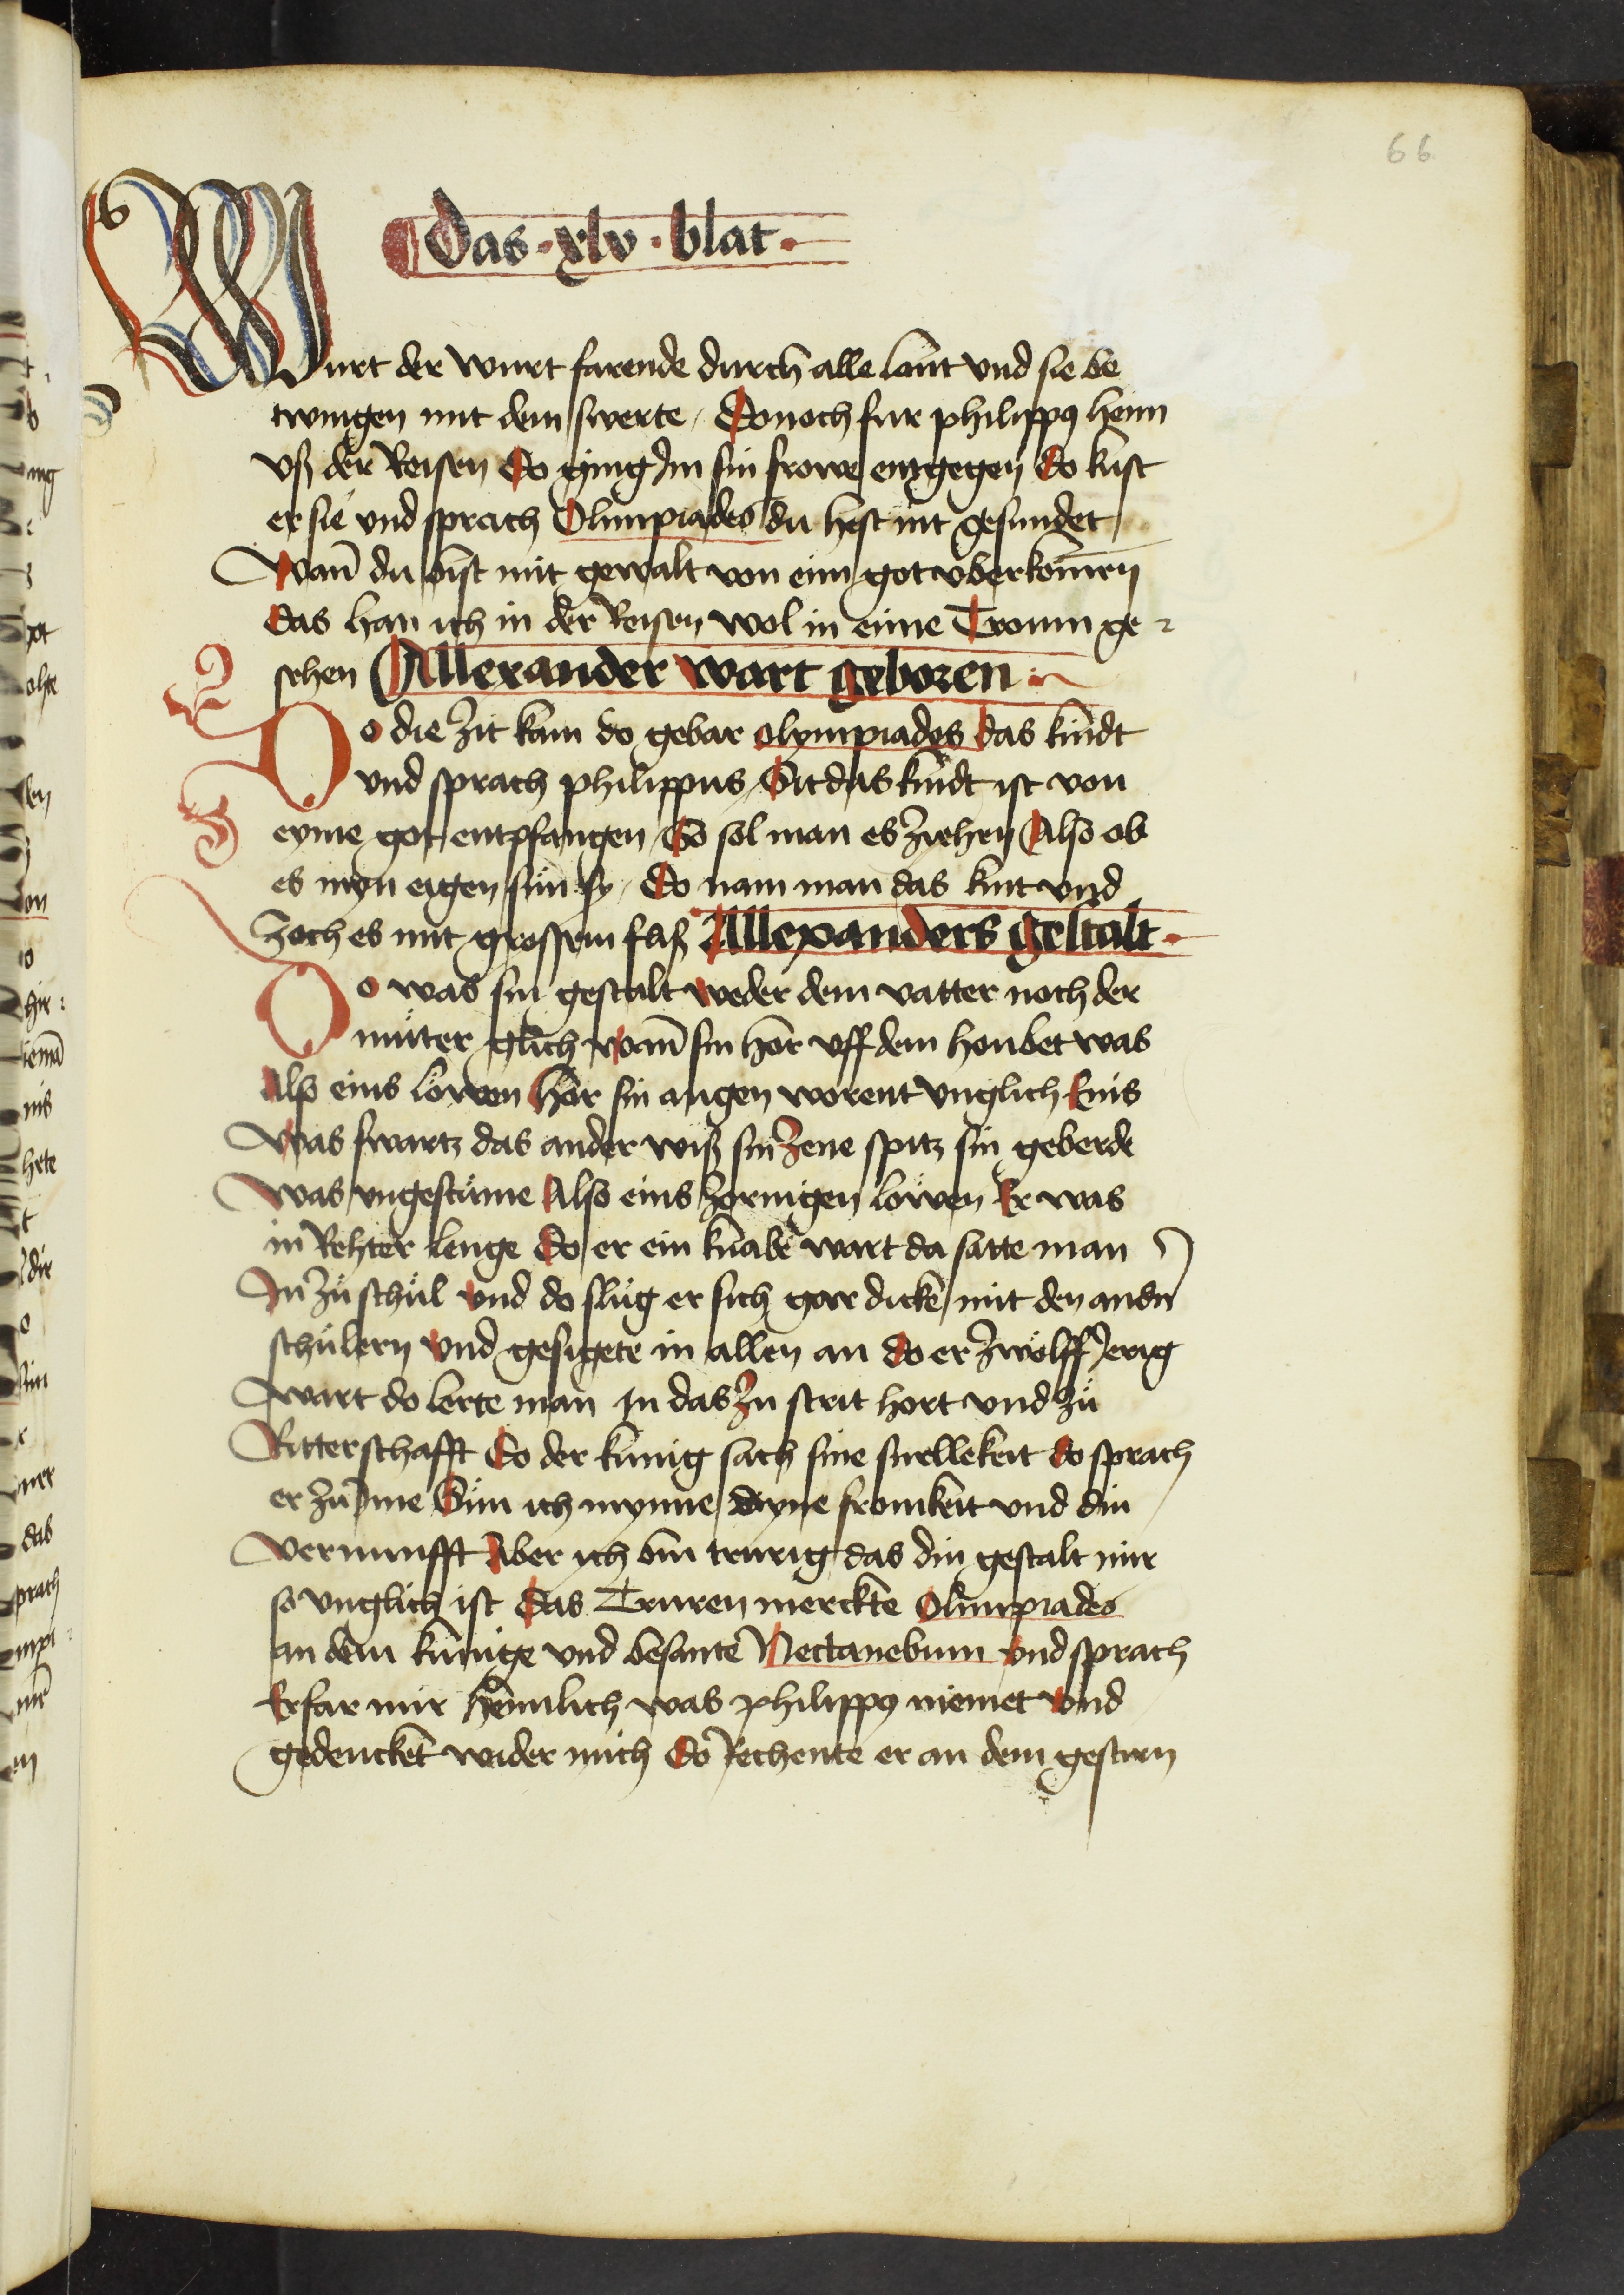 66
Das · xlv · blat ·
Wurt der wurt farende durch alle lant vnd sie be
twingen mit dem swerte / Donoch fur philippꝯ heim
vß der Reisen Do ging Im sin frowe entgegen Do kust
er sie vnd sprach Olimpiades du hest nit gesundet
Wan̄ du bist mit gewalt von eim got vberkom̄en
das han ich in der Reisen wol in eime Troum ge
sehen Allexander wart geboren
Do die zit kam do gebar olympiades das kindt
vnd sprach philippus / Sit das kindt ist von
eyme got entpfangen / So sol man es ziehen Also ob
es myn eigen sun sy / Do nam man das kint vnd
zoch es mit grossem fliß Allexanders gestalt ·
Do was sin gestalt weder dem vatter noch der
můter glich wan̄ sin hor vff dem houbet was
Als eins löwen hār sin augen worent vnglich Eins
was swartz das ander wiß sin zene spitz sin geberde
was vngestüme Also eins zornigen löwen Er was
in Rehter lenge Do er ein knabe wart da satte man
In zů schůl vnd do slůg er sich gar dicke mit den andn̄
schülern vnd gesigete in allen an do er zwölff Jerig
wart do lerte man in das zu strit hort vnd zů
Ritterschafft Do der kunig sach sine snellekeit do sprach
er zu Ime Sün ich mynne dyne fromkeit vnd din
vernunfft Aber ich bin trurig das din gestalt mir
so vnglich ist Das Truren merckte Olimpiades
an dem kunige vnd besante Nectanebum vnd sprach
Erfar mir heimlich was philippꝯ meinet vnd
gedencket wider mich Do Rechente er an dem gestirn